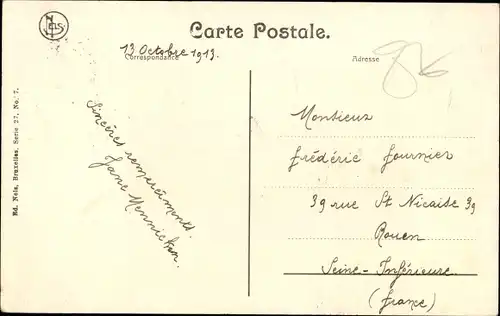 Nels
Carte Postale.
13 Octobre 1913.
Correspondance
Adresse
Ed. Nels, Bruxelles, Serie 27, No. 7.
Sincères remerciments.
Jane Mennicken.
Monsieur
Frédéric Fournier
39 rue St Nicaise 39
Rouen
Seine-Inférieure
(France)